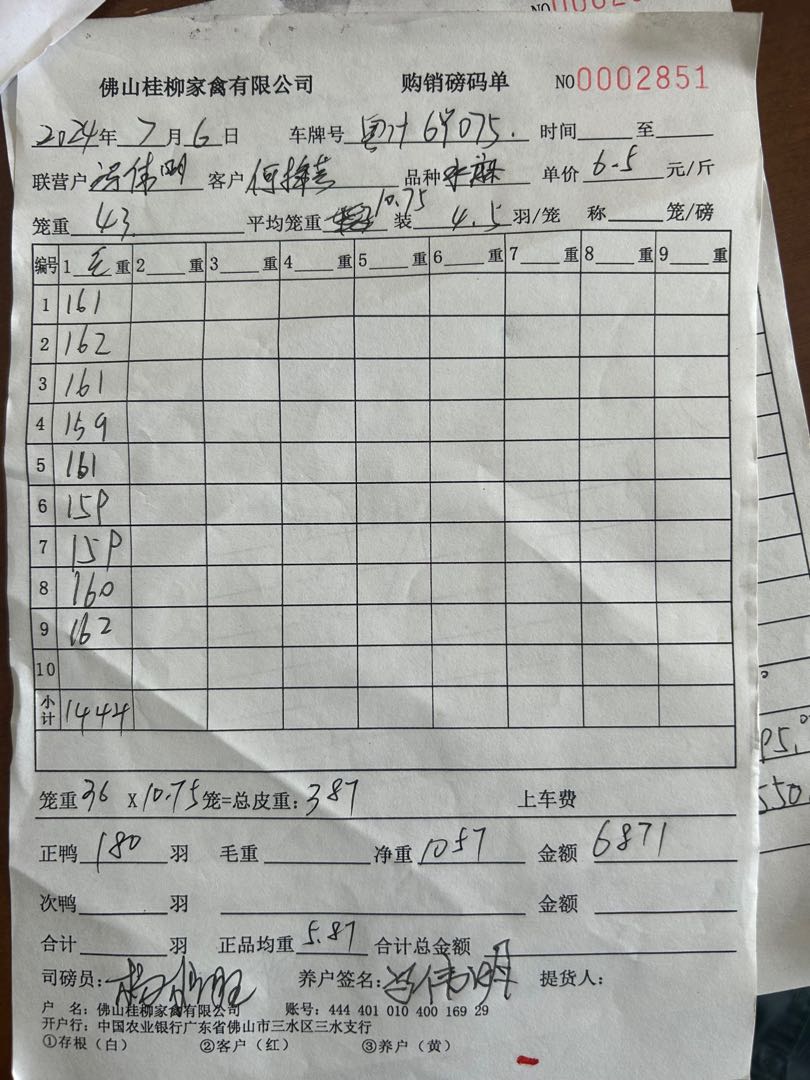 佛山桂柳家禽有限公司 购销磅码单 NO0002851
2024年7月6日 车牌号 累计64075. 时间 至
联营户 伟明 客户 何 品种 单价 6.5 元/斤
笼重 43 平均笼重 10.75 装 4.5 羽/笼 称 笼/磅
编号 1 毛 重 2 重 3 重 4 重 5 重 6 重 7 重 8 重 9 重
1 161
2 162
3 161
4 159
5 161
6 159
7 159
8 160
9 162
10
小计 1444
笼重36 X10.75笼=总皮重:387 上车费
正鸭 180 羽 毛重 净重 1057 金额 6871
次鸭 羽 金额
合计 羽 正品均重 5.87 合计总金额
司磅员: 养户签名: 伟明 提货人:
户 名: 佛山桂柳家禽有限公司 账号: 444 401 010 400 169 29
开户行: 中国农业银行广东省佛山市三水区三水支行
①存根（白） ②客户（红） ③养户（黄）